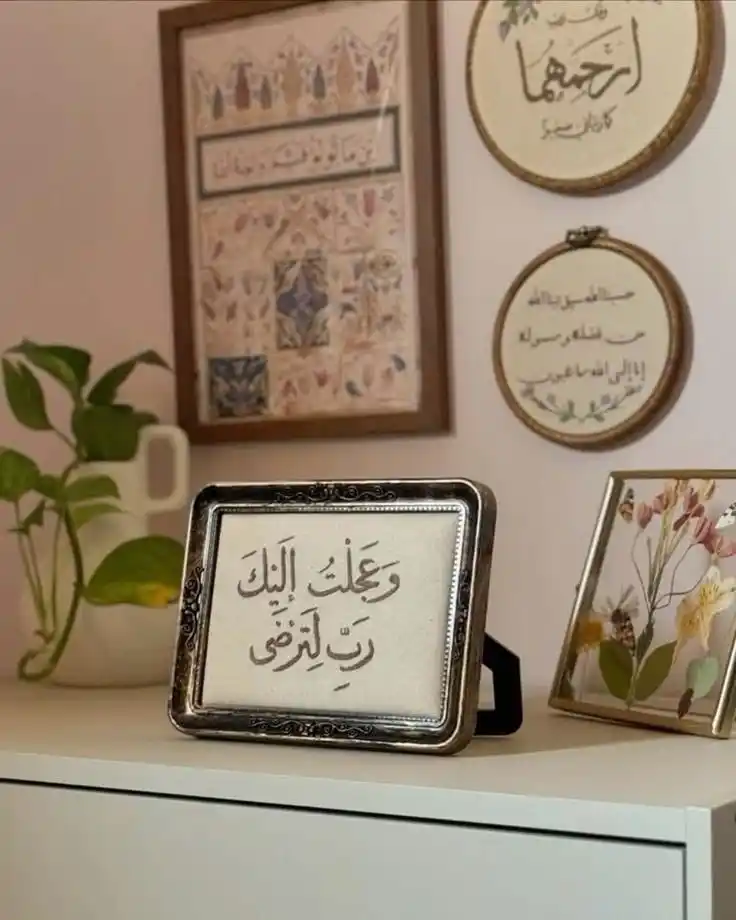 وقل رب
ارحمهما
كما ربياني صغيرا
حسبنا الله سيؤتينا الله
من فضله ورسوله
إنا إلى الله راغبون
وَعَجَلْتُ إلَيْكَ
رَبِّ لِتَرْضَى